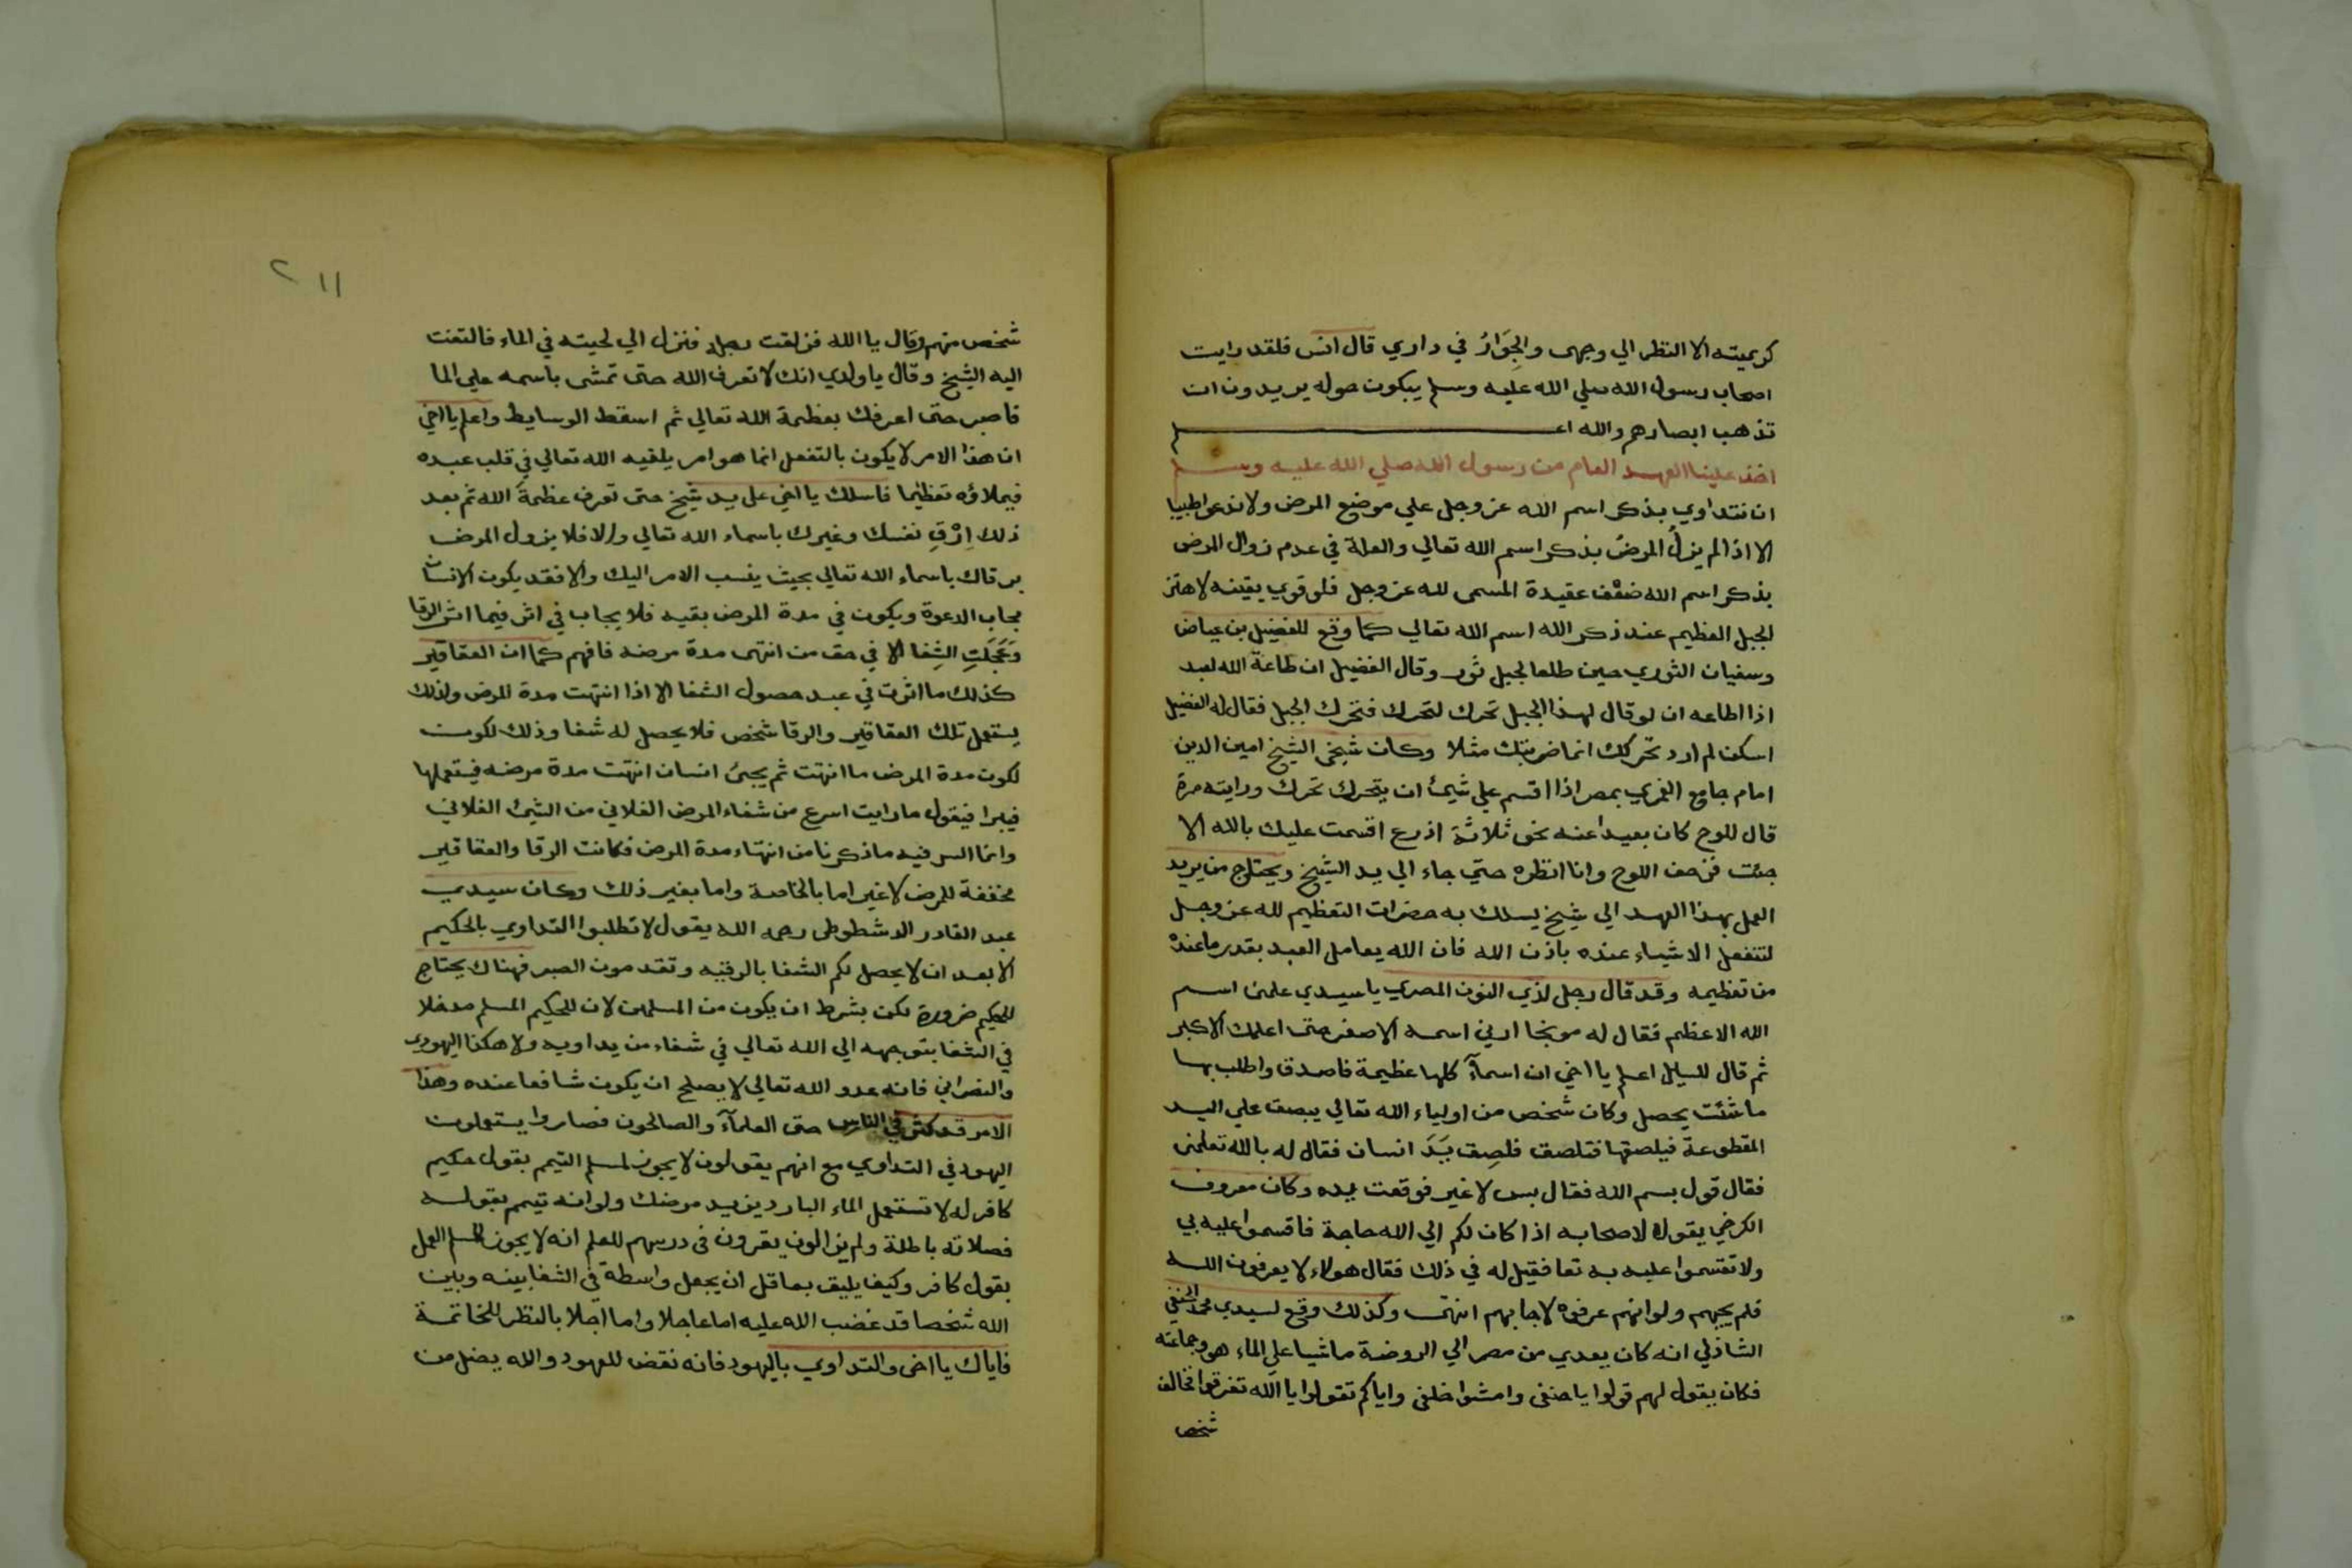 كريمتيه الا النظر الي وجهى والجِوَارُ في داري قال انس فلقد رايت
اصحاب رسول الله صلي الله عليه وسلم يبكون حوله يريدون ان
تذهب ابصارهم والله اعلم
اخذ علينا العهد العام من رسول الله صلي الله عليه وسلم
ان نتداوي بذكر اسم الله عز وجل علي موضع المرض ولا ندعوا طبيبا
الا اذا لم يزلُ المرضُ بذكر اسم الله تعالي والعلة في عدم زوال المرض
بذكر اسم الله ضعْف عقيدة المسمى لله عز وجل فلو قوي يقينه لاهتز
الجبل العظيم عند ذكر الله اسم الله تعالى كما وقع للفضيل بن عياض
وسفيان الثوري حين طلعا لجبل ثور وقال الفضيل ان طاعة الله لعبد
اذا اطاعه ان لو قال لهذا الجبل تحرك لتحرك فتحرك الجبل فقال له الفضيل
اسكن لم ارد تحركك انما ضربتك مثلا وكان شيخى الشيخ امين الدين
امام جامع الغمري بمصر اذا اقسم علي شيئ ان يتحرك تحرك ورايته مرة
قال للوح كان بعيدا عنه نحو ثلاثة اذرع اقسمت عليك بالله الا
جئت فزحف اللوح وانا انظره حتي جاء الي يد الشيخ ويحتاج من يريد
العمل بهذا العهد الي شيخ يسلك به حضرات التعظيم لله عز وجل
لتنفعل الاشياء عنده باذن الله فان الله يعامل العبد بقدر ما عنده
من تعظيمه وقد قال رجل لذي النون المصري يا سيدي علمنى اسم
الله الاعظم فقال له موبخا ارني اسمه الاصغر حتى اعلمك الاكبر
ثم قال للسايل اعلم يا اخي ان اسماءَ كلها عظيمة فاصدق واطلب بها
ما شئت يحصل وكان شخص من اولياء الله تعالي يبصق علي اليد
المقطوعة فيلصقها فتلصق فلصِق يَدَ انسان فقال له بالله تعلمنى
فقال قول بسم الله فقال بس لا غير فوقعت يده وكان معروف
الكرخي يقول لاصحابه اذا كان لكم الي الله حاجة فاقسموا عليه بي
ولا تقسموا عليه به تعا فقيل له في ذلك فقال هولاء لا يعرفون الله
فلم يجبهم ولو انهم عرفوه لاجابهم انتهى وكذلك وقع لسيدي محمد الحنفي
الشاذلي انه كان يعدي من مصر الي الروضة ماشيا على الماء هو وجماعته
فكان يقول لهم قولوا يا حنفى وامشوا خلفى واياكم تقولوا يا الله تغرقوا فخالف
شخص
٢١١
شخص منهم وقال يا الله فزلقت رجله فنزل الي لحيته في الماء فالتفت
اليه الشيخ وقال يا ولدي انك لا تعرف الله حتى تمشى باسمه علي الما
فاصبر حتى اعرفك بعظمة الله تعالي ثم اسقط الوسايط واعلم يا اخي
ان هذا الامر لا يكون بالتفعل انما هو امر يلقيه الله تعالي في قلب عبده
فيملاؤه تعظيما فاسلك يا اخي على يد شيخ حتى تعرف عظمةَ الله ثم بعد
ذلك اِرْقِ نفسك وغيرك باسماء الله تعالي والا فلا يزول المرض
برقاك باسماء الله تعالي بحيث ينسب الامر اليك والا فقد يكون الانسان
مجاب الدعوة ويكون في مدة المرض بقيه فلا يجاب في اثر فيما اثر الرقا
وعَجَلَتِ الشِفا الا في حق من انتهى مدة مرضه فافهم كما ان العقاقير
كذلك ما اثرت في عبد حصول الشفا الا اذا انتهت مدة المرض ولذلك
يستعمل تلك العقاقير والرقا شخص فلا يحصل له شفا وذلك لكون
لكون مدة المرض ما انتهت ثم يجئ انسان انتهت مدة مرضه فيستعملها
فيبرا فيقول ما رايت اسرع من شفاء المرض الفلاني من الشيئ الفلاني
وانما السر فيه ما ذكرنا من انتهاء مدة المرض فكانت الرقا والعقاقير
مخففة للمرض لا غير اما بالخاصة واما بغير ذلك وكان سيدي
عبد القادر الدشطوطى رحمه الله يقول لا تطلبوا التداوي بالحكيم
الا بعد ان لا يحصل لكم الشفا بالرقيه وتقدمون الصبر فهناك يحتاج
للحكيم ضرورة لكن بشرط ان يكون من المسلمين لان للحكيم المسلم مدخلا
في الشفا بتوجهه الي الله تعالي في شفاء من يداويه ولا هكذا اليهودي
والنصراني فانه عدو الله تعالي لا يصلح ان يكون شافعا عنده وهذا
الامر قد كثر في الناس حتى العلماءَ والصالحون فصاروا يستعملون
اليهود في التداوي مع انهم يقولون لا يجوز لمسلم التيمم بقول حكيم
كافر له لا تستعمل الماء البارد يزيد مرضك ولو انه تيمم بقوله
فصلاته باطلة ولم يزالون يقرون فى درسهم للعلم انه لا يجوز للمسلم العمل
بقول كافر وكيف يليق بعاقل ان يجعل واسطة في الشفا بينه وبين
الله شخصا قد غضب الله عليه اما عاجلا واما اجلا بالنظر للخاتمة
فاياك يا اخى والتداوي باليهود فانه نقض للعهود والله يضل من